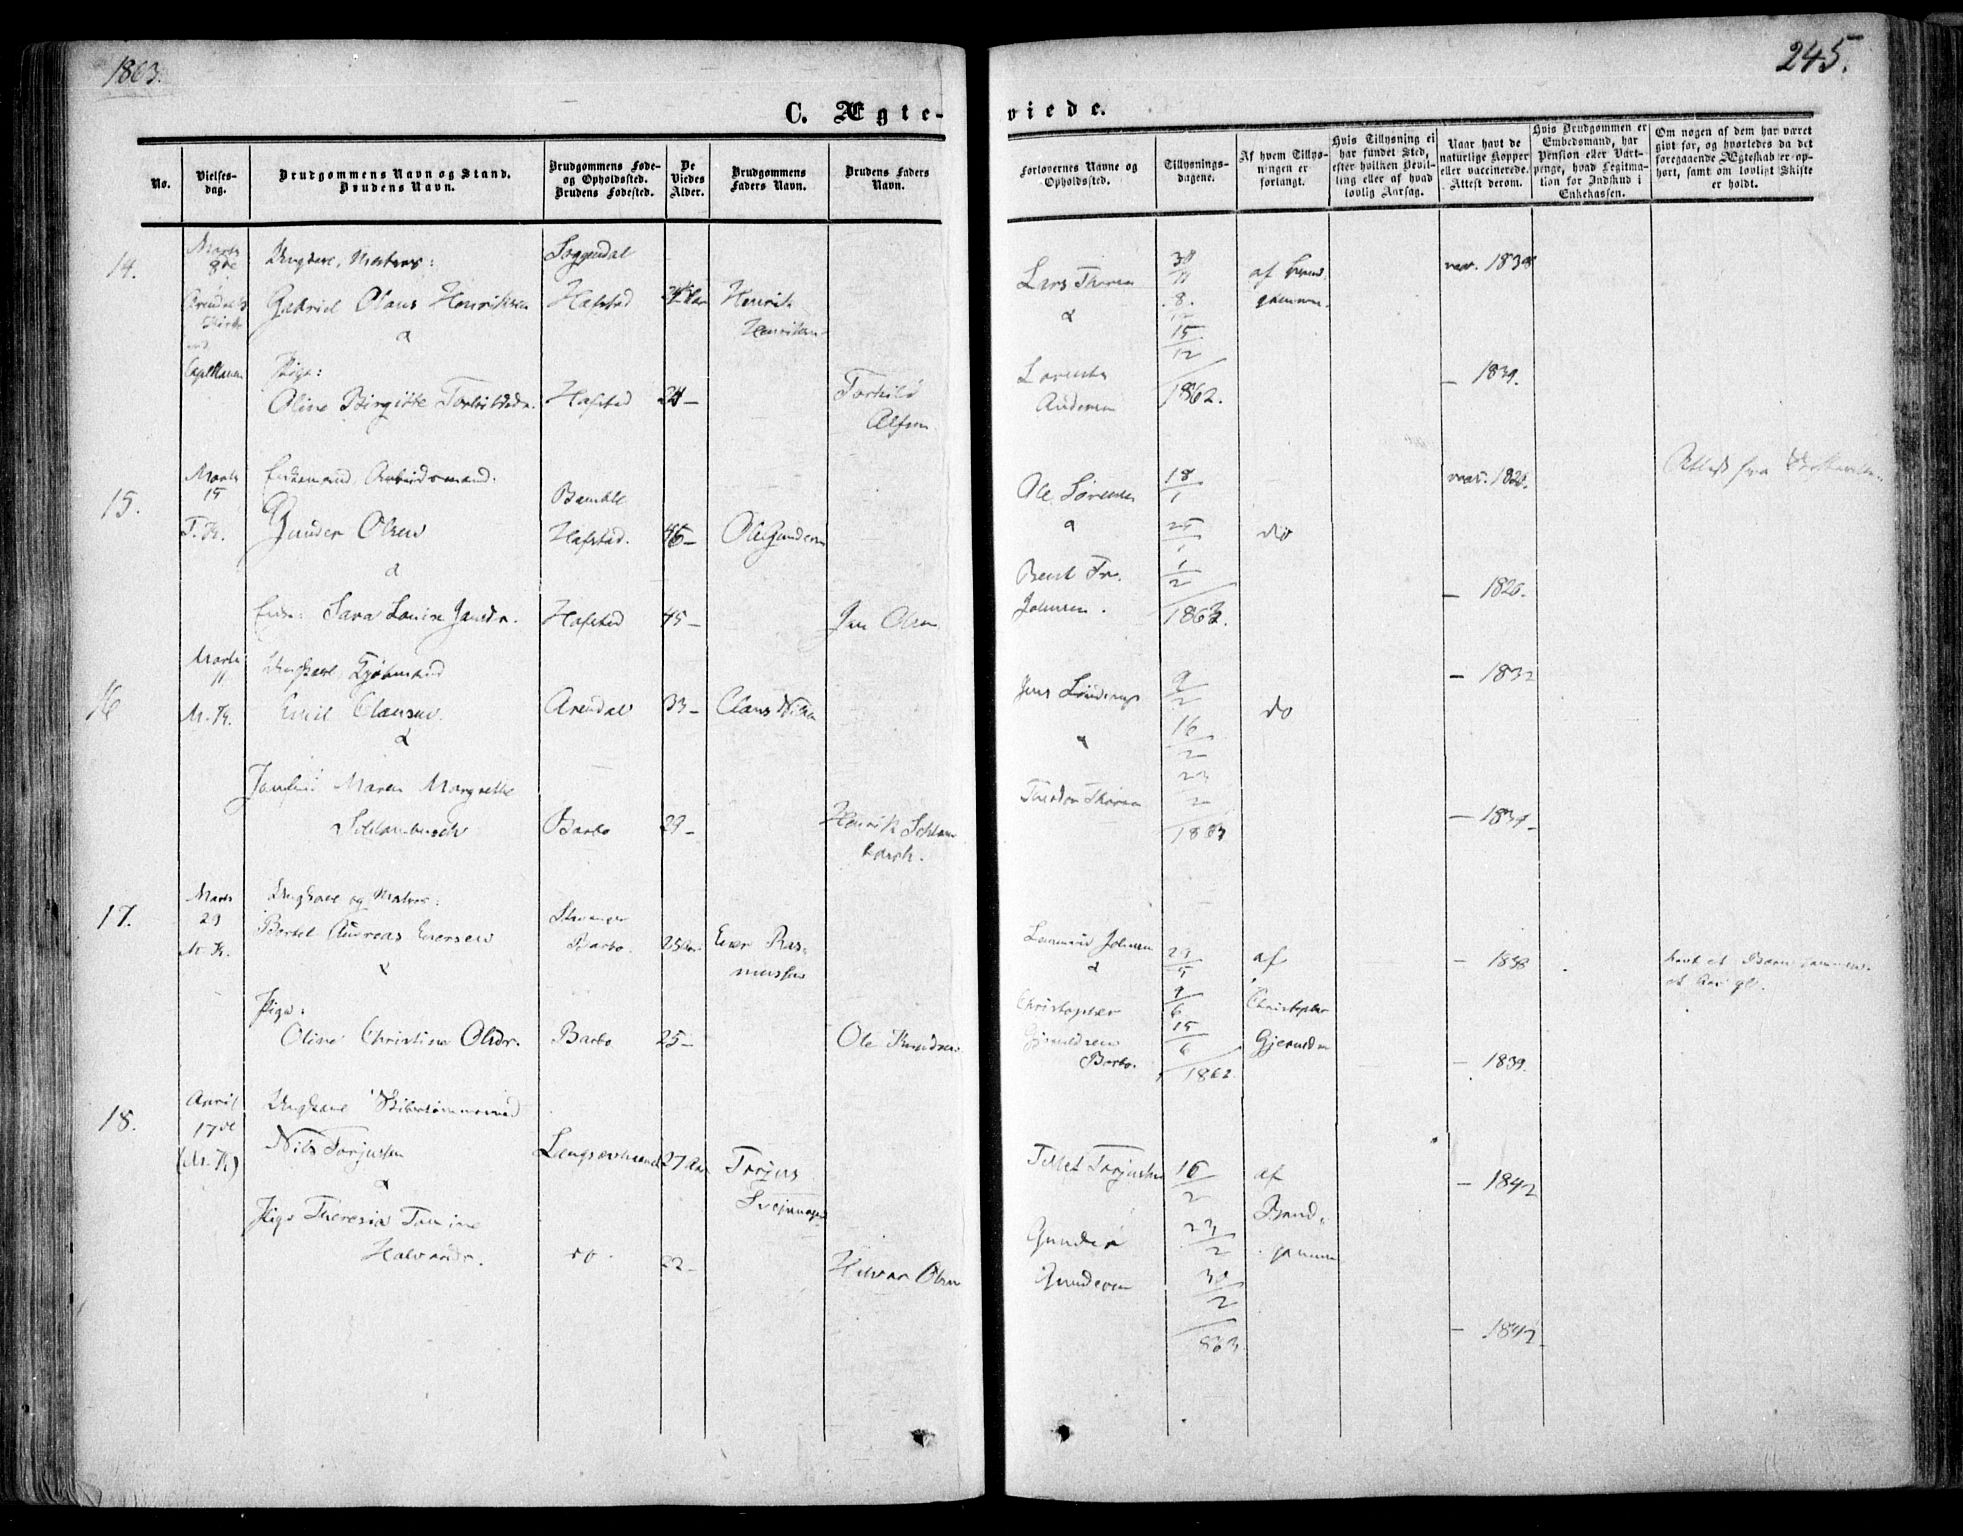 1863.
245.
C. Ægte-
viede.
No.
Vielses-
dag.
Brudgommens Navn og Stand.
Brudens Navn.
Brudgommens Føde-
og Opholdssted.
Brudens Fødested.
De
Viedes
Alder.
Brudgommens
Faders Navn.
Brudens Faders
Navn.
Forlovernes Navne og
Opholdssted.
Tillysnings-
dagene.
Af hvem Tillys-
ningen er
forlangt.
Hvis Tillysning ei
har fundet Sted,
efter hvilken Bevil-
ling eller af hvad
lovlig Aarsag.
Naar havt de
naturlige Kopper
eller vaccinerede.
Attest derom.
Hvis Brudgommen er
Embedsmand, har
Pension eller Vart-
penge, hvad Legitima-
tion for Indskud i
Enkekassen.
Om nogen af dem har været
gift før, og hvorledes da det
foregaaende Ægteskab er op-
hørt, samt om lovligt Skifte
er holdt.
14.
Marts
8de
Arendals
Kirke
Ungkarl, Matros:
Gabriel Olaus Henriksen
&
Pige:
Oline Birgitte Torkildsdr.
Soggendal
Hafsted
Hafsted
24 –
Henrik
Henriksen
Torkild
Alfsen
Lars Thorsen
&
Laurentz
Andersen
8.
15
12
1862.
af Brud-
gommen.
vac. 1839
– 1839.
15.
Marts
15
T. K.
Enkemand Arbeidsmand.
Gunder Olsen
&
Enke: Sara Louise Jansdr.
Bamble
Hafsted.
Hafsted
46 –
45 –
Ole Gundersen
Jan Olsen
Ole Sørensen
&
Bent Fr.
Johnsen.
18
1
25
1
1
2
1863.
do
vac. 1826.
– 1826.
Attest fra Skifteretten.
16
Marts
11
M. K.
Ungkarl, Sjømand
Emil Clausen
&
Jomfru: Maren Margrethe
Schlanbusch
Arendal
Barbo
33 –
29 –
Claus Nilsen
Henrik Schlan-
busch.
Jens
&
Theodor Thorsen
9
2
16
2
23
2
1863
do
– 1832
– 1834 –
17.
Marts
29
M. K.
Ungkarl og Matros:
Bertel Andreas Eversen
&
Pige:
Oline Christine Olsdr.
Stavanger
Barbo.
Barbo
25 Aar
25 –
Ever Ras-
mussen
Ole Knudsen
Johnsen
&
Christopher
Gjeruldsen
Barbo.
9
6
15
6
1862
af
Christopher
Gjeruldsen
– 1838
– 1839.
havt et Barn sammen
18.
April
17de
(M. K.)
Ungkarl Skibstømmermand
Nils Torjussen
&
Pige Theresia Tomine
Halvorsdr.
do.
27 Aar
22 –
Torjus
Halvor Olsen
Tellef Torjussen
Gunder
Gundersen
16
2
23
2
30
2
863
af
Brud-
gommen
– 1842
– 1842